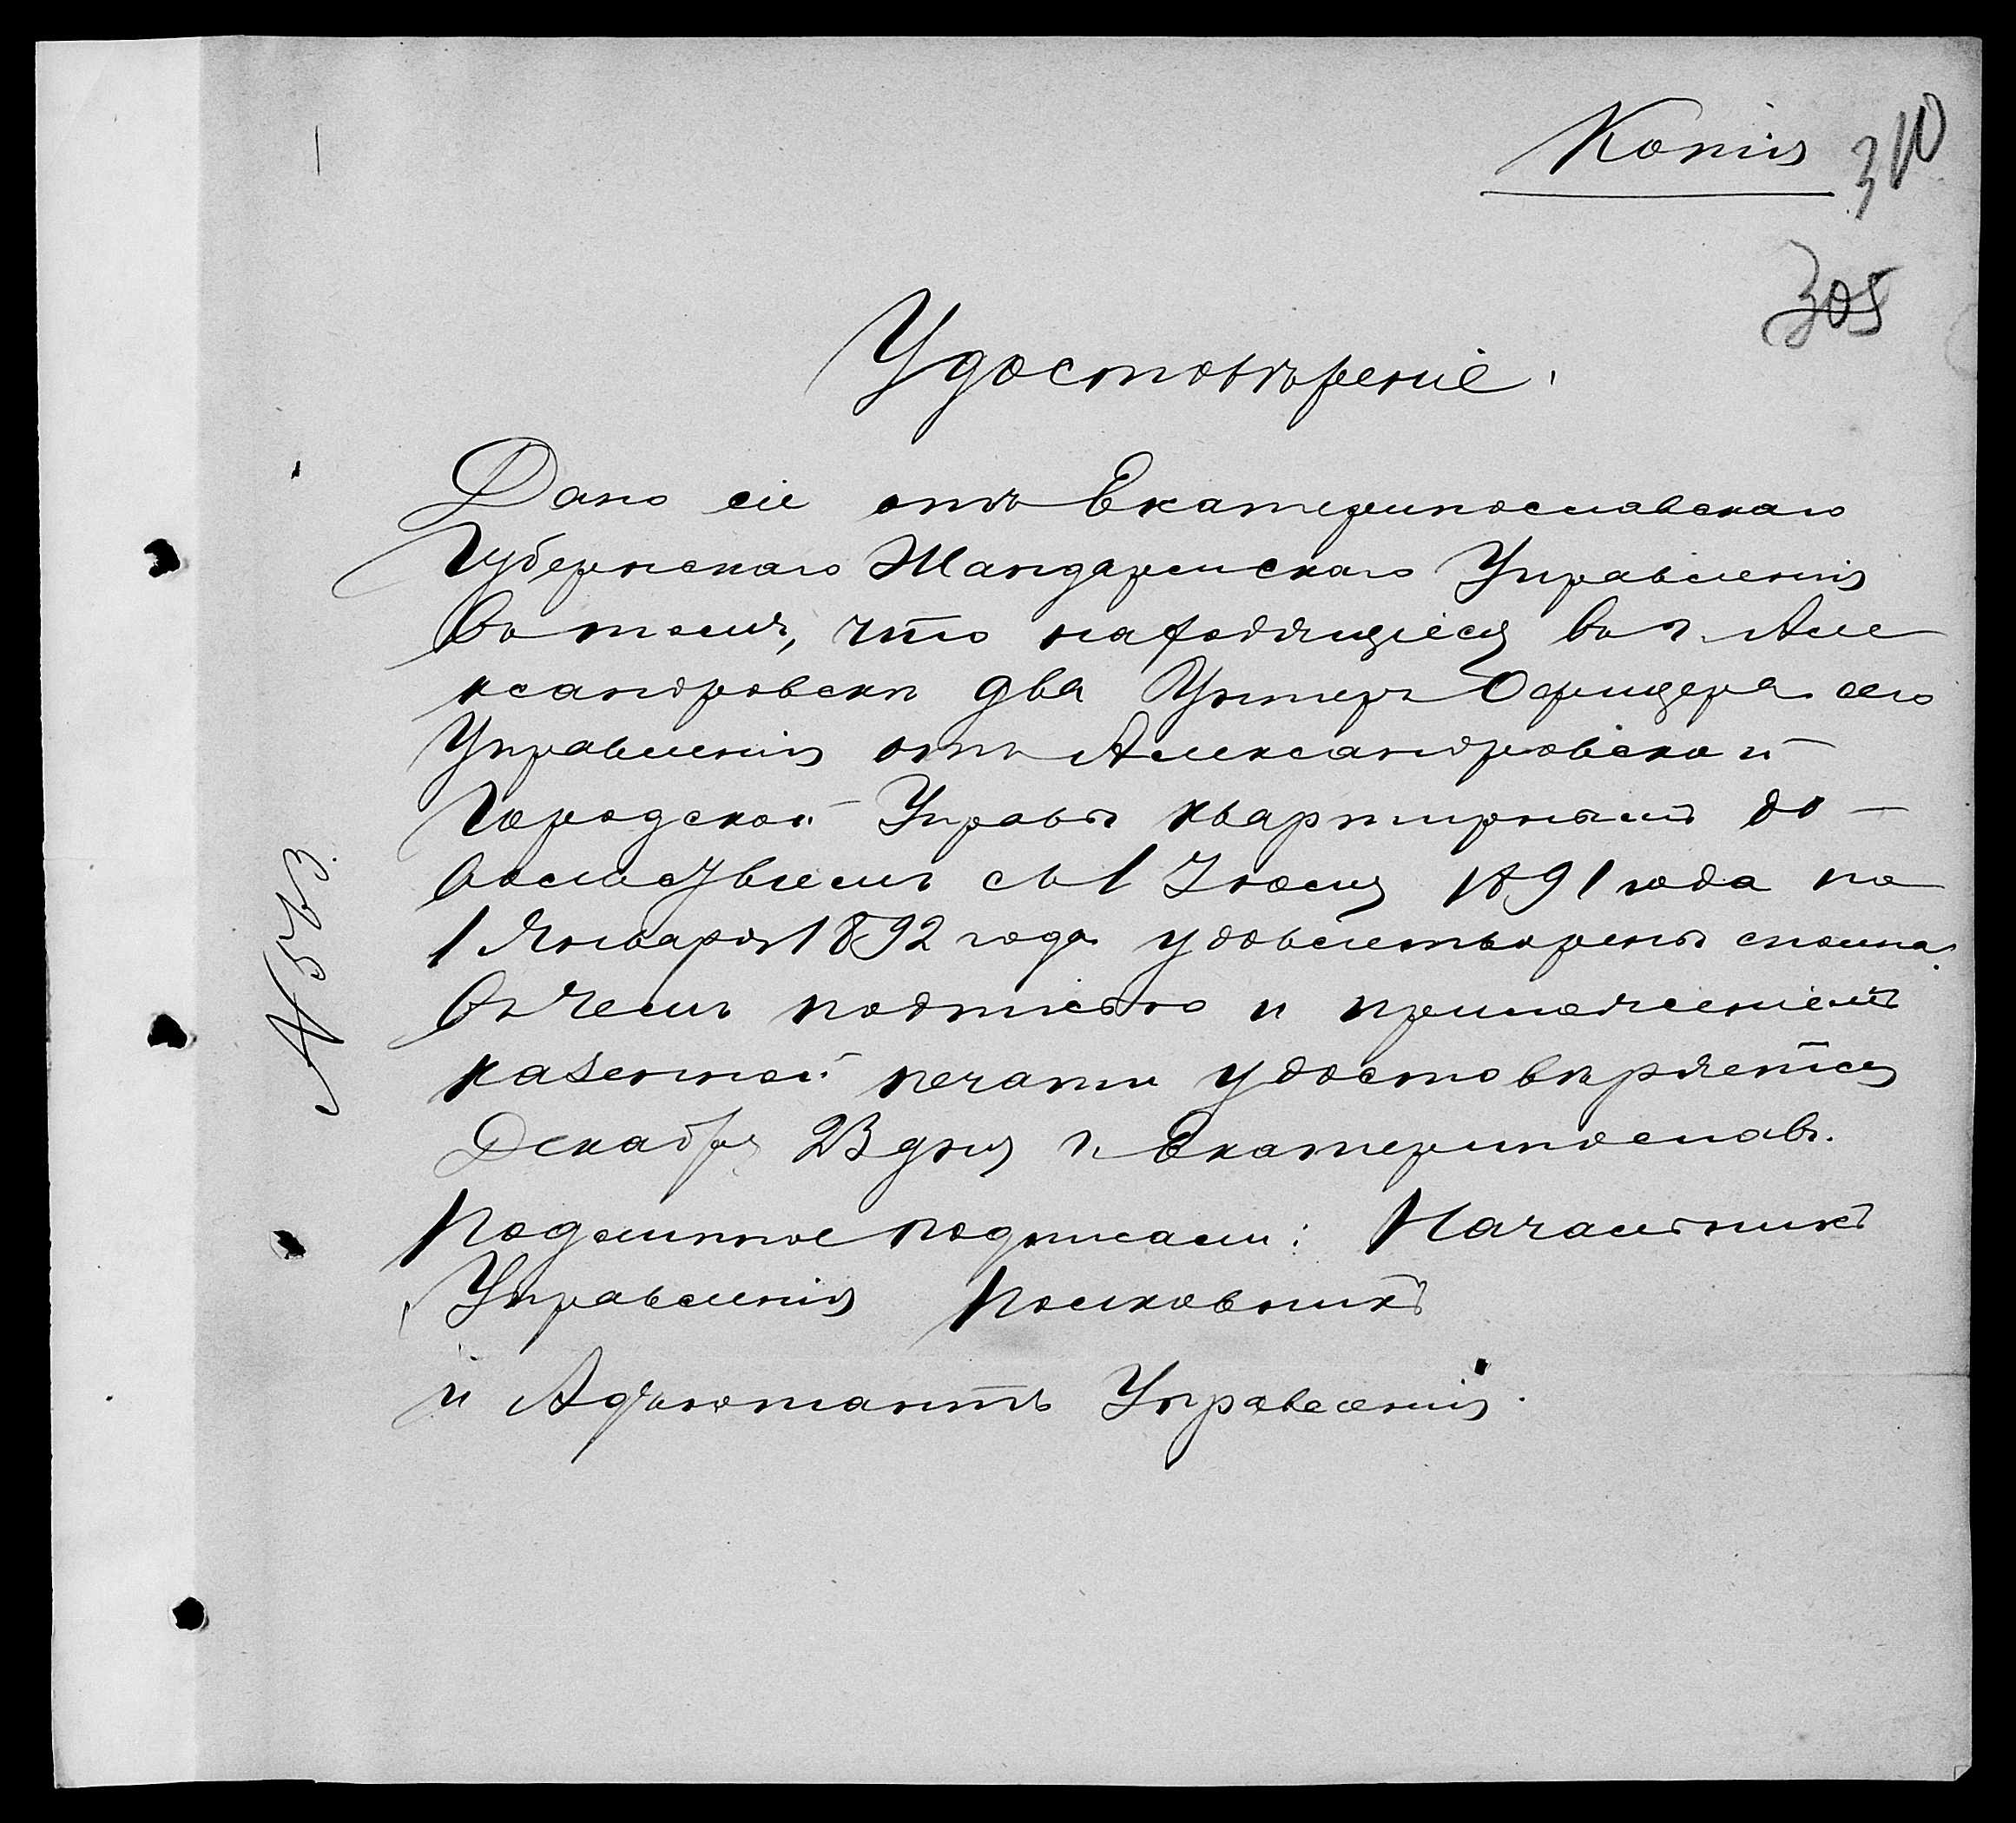 Копія
310
305
Удостовѣреніе.
Дано сіе отъ Екатеринославскаго
Губернскаго Жандармскаго Управленія
въ томъ, что находящіеся въ г. Але
ксандровскѣ два Унтеръ Офицера сего
Управленія отъ Александровской
Городской Управы квартирнымъ до-
вольствіемъ съ 1 Іюля 1891 года по
1 Января 1892 года удовлетворены сполна
Въ чемъ подписью и приложеніемъ
казенной печати удостовѣряется
Декабря 23 дня г. Екатеринославъ.
Подлинное подписали: Начальникъ
Управленія Полковникъ
и Адъютантъ Управленія.